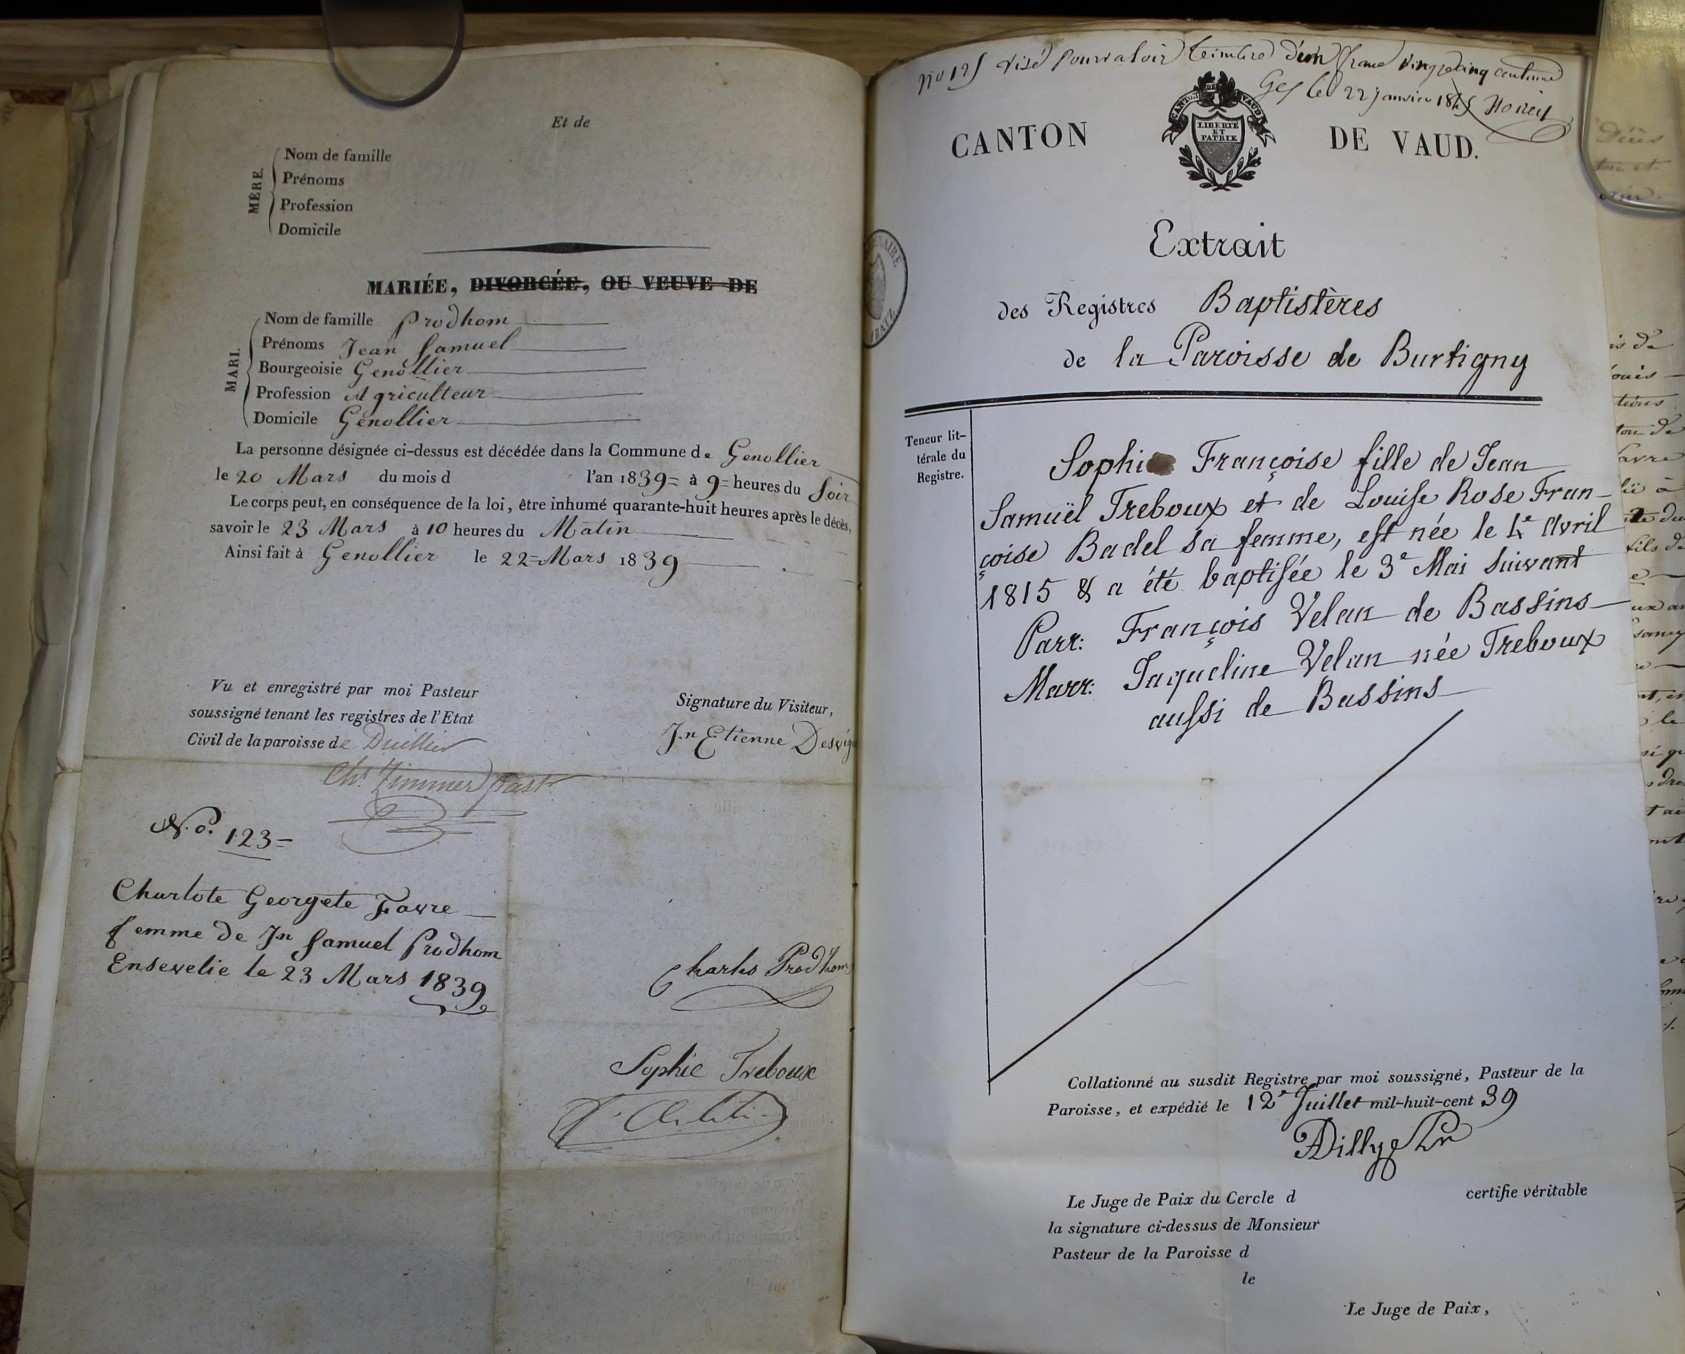 Et de
MÈRE.
Nom de famille
Prénoms
Profession
Domicile
MARIÉE, DIVORCÉE, OU VEUVE DE
MARI.
Nom de famille Prodhom
Prénoms Jean Samuel
Bourgeoisie Genollier
Profession Agriculteur
Domicile Genollier
La personne désignée ci-dessus est décédée dans la Commune de Genollier
le 20 Mars du mois d l'an 1839= à 9= heures du Soir
Le corps peut, en conséquence de la loi, être inhumé quarante-huit heures après le décès,
savoir le 23 Mars à 10 heures du Matin
Ainsi fait à Genollier le 22= Mars 1839
Vu et enregistré par moi Pasteur
soussigné tenant les registres de l'Etat
Civil de la paroisse de Duillier
Signature du Visiteur,
Jn Etienne
Chs Zimmer past
No. 123=
Charlote Georgete Favre
femme de Jn Samuel Prodhom
Ensevelie le 23 Mars 1839
Charles Prodhom
Sophie Treboux
No 125 Visé pour valoir timbre d'un franc vingt cinq centimes
Gex le 22 janvier
CANTON DE VAUD.
CANTON DE VAUD
LIBERTÉ
ET
PATRIE
Extrait
des Registres Baptistères
de la Paroisse de Burtigny
Teneur lit-
térale du
Registre.
Sophie Françoise fille de Jean
Samuël Treboux et de Louise Rose Fran-
çoise Badel sa femme, est née le 4e Avril
1815 & a été baptisée le 3e Mai suivant
Parr: François Velan de Bassins
Marr: Jaqueline Velan née Treboux
aussi de Bassins
Collationné au susdit Registre par moi soussigné, Pasteur de la
Paroisse, et expédié le 12e Juillet mil-huit-cent 39
Le Juge de Paix du Cercle d certifie véritable
la signature ci-dessus de Monsieur
Pasteur de la Paroisse d
le
Le Juge de Paix,